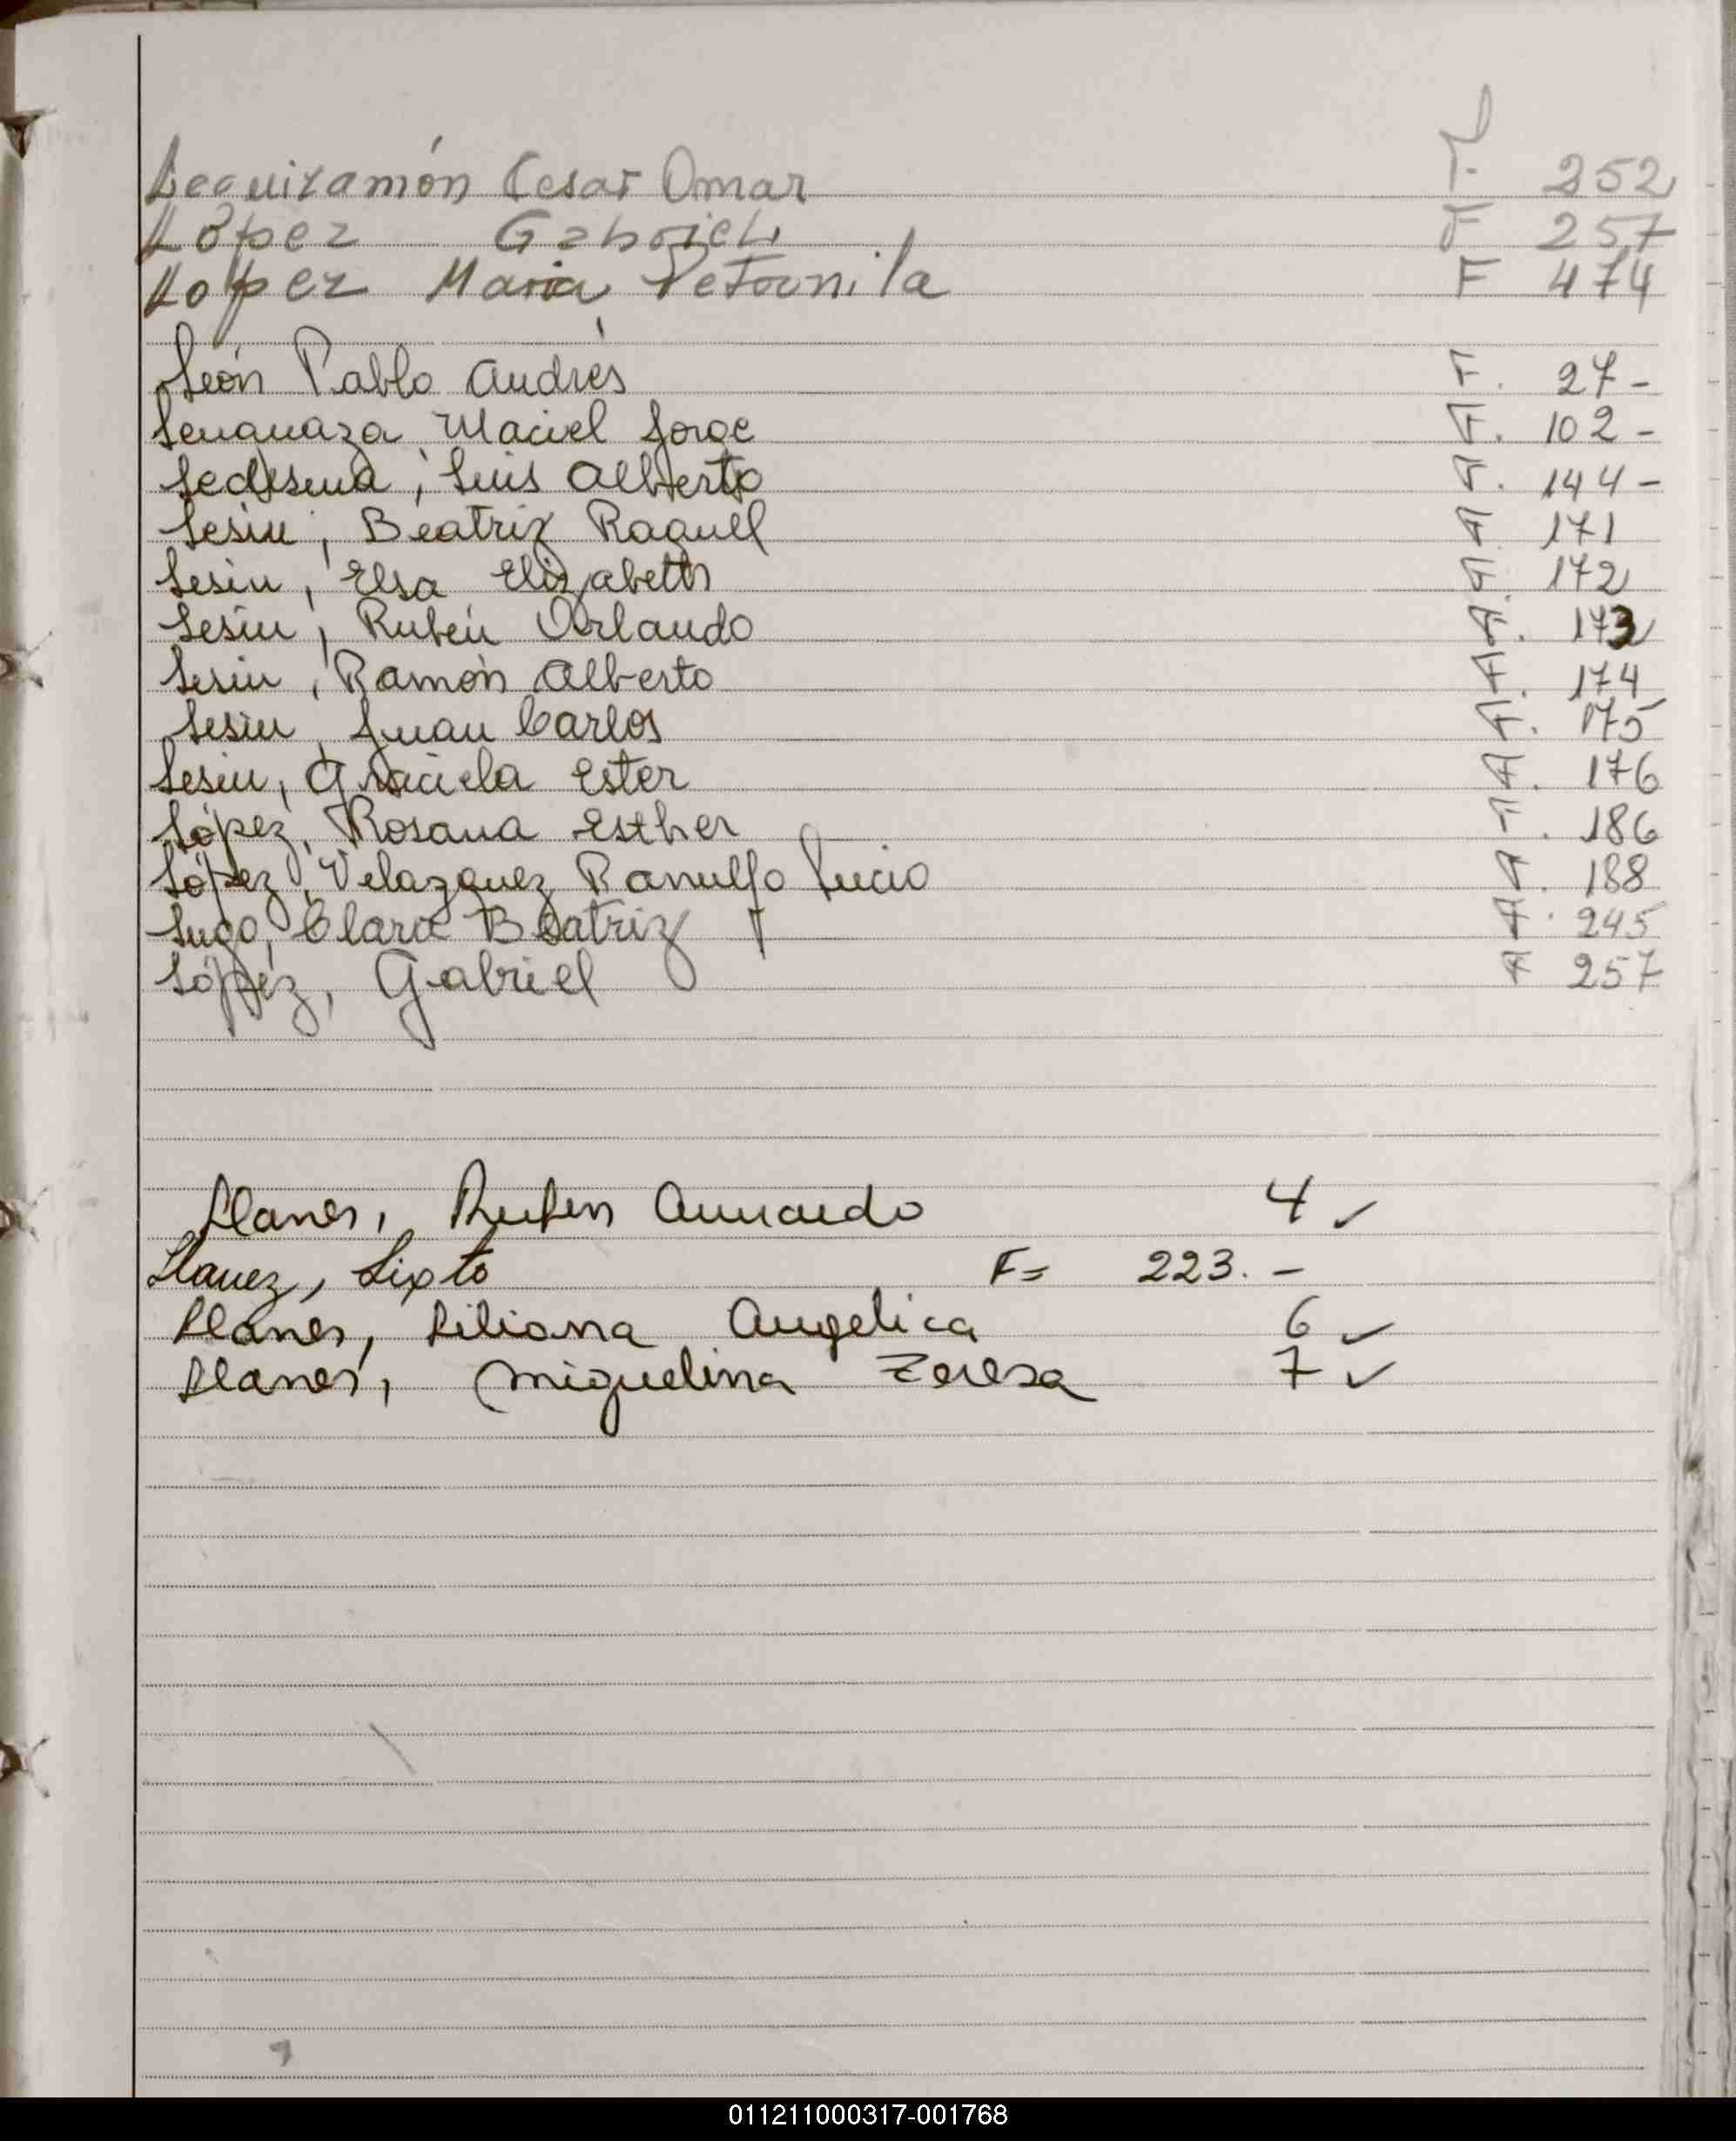 Leguizamón Cesar Omar F. 252
López Gabriel F 257
Lopez Maria Petronila F 474
León Pablo Andrés F. 27-
Lenguaza Maciel Jorge F. 102-
Ledesma, Luis Alberto F. 144-
Lesiu, Beatriz Raquel F. 171
Lesiu, Elsa Elizabeth F. 172
Lesiu, Rubén Orlando F. 173
Lesiu, Ramón Alberto F. 174
Lesiu, Juan Carlos F. 175
Lesiu, Graciela Ester F. 176
López, Rosana Esther F. 186
López, Velazquez Ranulfo Lucio F. 188
Lugo, Clara Beatriz F. 245
López, Gabriel F 257
Llanes, Ruben Armando 4 ✓
Llanez, Sixto F= 223.-
Llanes, Liliana Angelica 6 ✓
Llanes, Miguelina Teresa 7 ✓
011211000317-001768